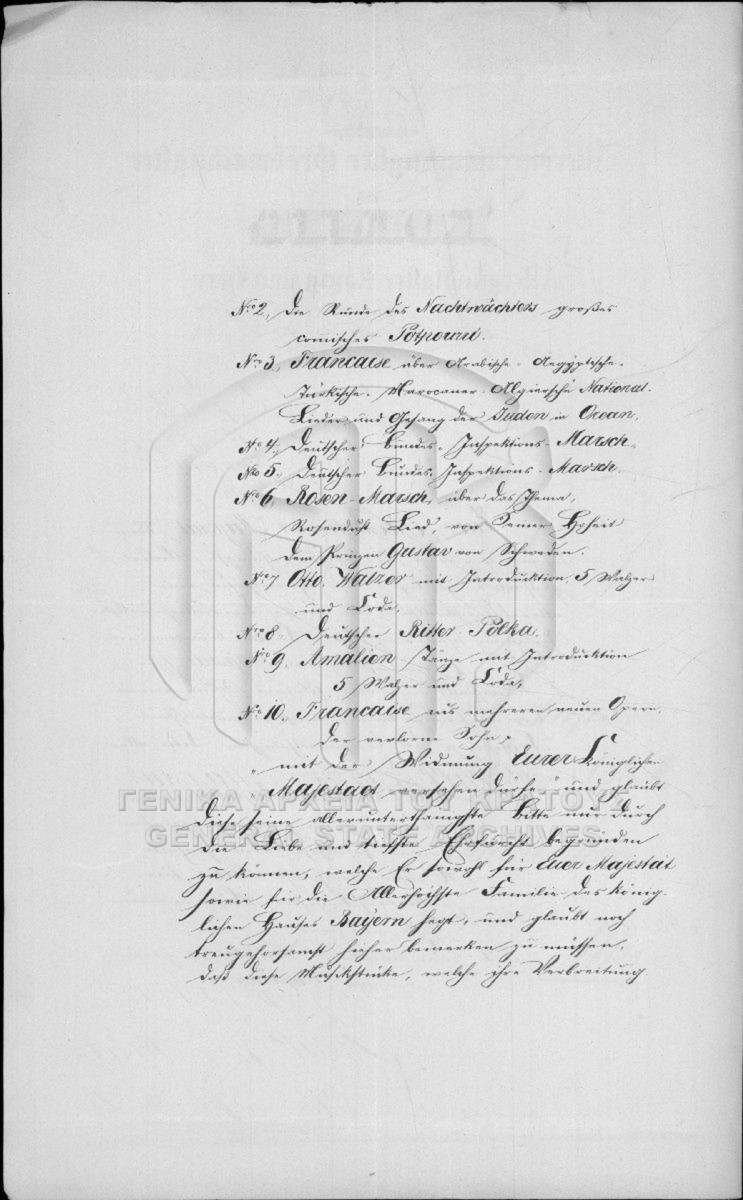 No 2., Die Runde des Nachtwächters großes
comisches Potpourri.
No 3., Francaise über Arabische- Aegyptische-
Türkische- Marocaner- Algiersche National-
Lieder und Gesang der Juden in Ocean.
No 4., Deutscher Bundes- Inspektions- Marsch.
No 5., Deutscher Bundes- Inspektions- Marsch.
No 6., Rosen-Marsch, über das Thema,
Rosenduft Lied, von Seiner Hoheit
dem Prinzen Gustav von Schweden.
No 7 Otto. Walzer mit Introduktion, 5 Walzer
und Coda.
No 8., Deutscher Ritter- Polka.
No 9., Amalien Tänze mit Introduktion
5 Walzer und Coda,
No 10., Francaise aus mehreren neuen Opern,
Der verlorne Sohn,
„mit der Widmung Eurer Königlichen
„Majestaet versehen dürfe" und glaubt
diese seine allerunterthänigste Bitte nur durch
die Liebe und tiefste Ehrfurcht begründen
zu können, welche Er sowohl für Euer Majestät
sowie für die Allerhöchste Familie des König-
lichen Hauses Bayern hegt, und glaubt noch
treugehorsamst hieher bemerken zu müssen,
daß diese Musikstücke, welche ihre Verbreitung
ΓΕΝΙΚΑ ΑΡΧΕΙΑ ΤΟΥ ΚΡΑΤΟΥΣ
GENERAL STATE ARCHIVES